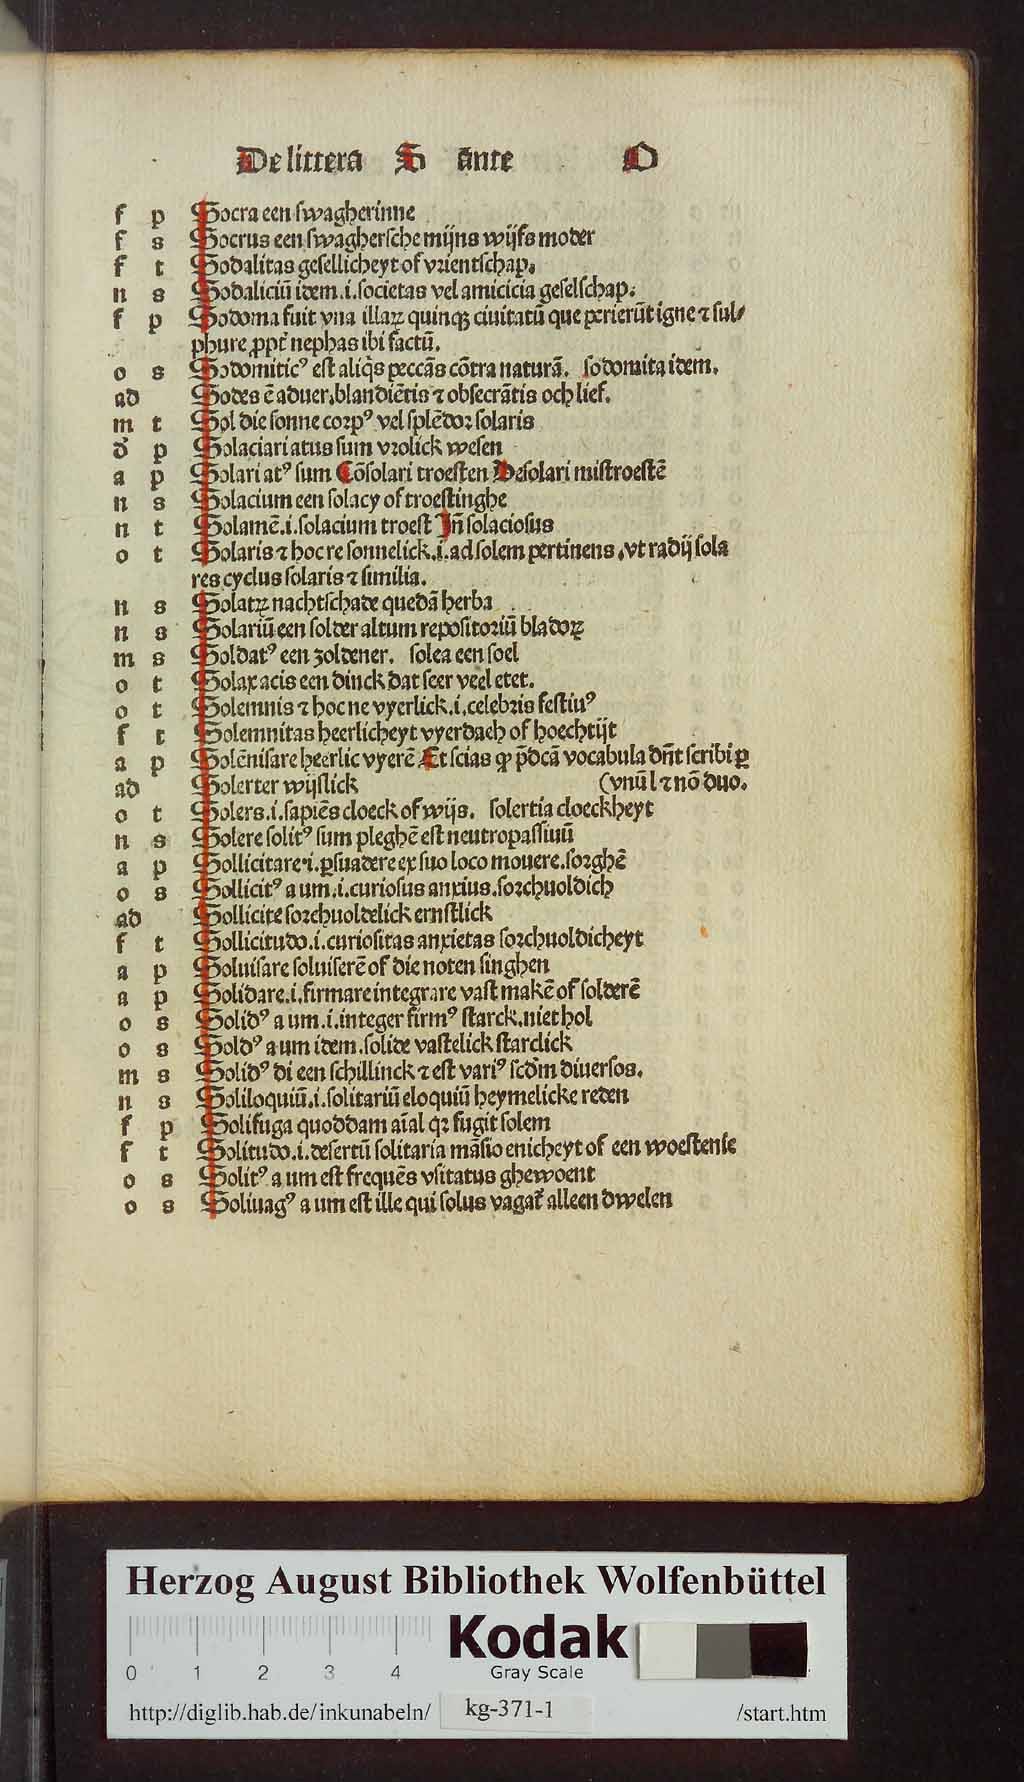 De littera S ante O
f p Socra een swagherinne
f s Socrus een swaghersche mijns wijfs moder
f t Sodalitas gesellicheyt of vrientschap.
n s Sodaliciū idem .i. societas vel amicicia geselschap.
f p Sodoma fuit vna illaꝝ quinqꝫ ciuitatū que perierūt igne ⁊ sul⸗
phure ꝓpt̄ nephas ibi factū.
o s Sodomiticꝰ est aliq̇s peccās cōtra naturā. sodomita idem.
ad Sodes ē aduer. blandiētis ⁊ obsecrātis och lief.
m t Sol die sonne corpꝰ vel splēdor solaris
d̓ p Solaciari atus sum vrolick wesen
a p Solari atꝰ sum Cōsolari troesten Desolari mistroestē
n s Solacium een solacy of troestinghe
n t Solamē .i. solacium troest Jn̄ solaciosus
o t Solaris ⁊ hoc re sonnelick .i. ad solem pertinens. vt radij sola
res cyclus solaris ⁊ similia.
n s Solatꝝ nachtschade quedā herba
n s Solariū een solder altum repositoriū bladoꝝ
m s Soldatꝰ een zoldener. solea een soel
o t Solax acis een dinck dat seer veel etet.
o t Solemnis ⁊ hoc ne vyerlick .i. celebris festiuꝰ
f t Solemnitas heerlicheyt vyerdach of hoechtijt
a p Solēnisare heerlic vyerē Et scias ꝙ p̄dcā vocabula dn̄t scribi ꝑ
ad Solerter wijslick (vnū l ⁊ nō duo.
o t Solers .i. sapiēs cloeck of wijs. solertia cloeckheyt
n s Solere solitꝰ sum pleghē est neutropassiuū
a p Sollicitare .i. ꝑsuadere ex suo loco mouere. sorghē
o s Sollicitꝰ a um .i. curiosus anxius. sorchuoldich
ad Sollicite sorchuoldelick ernstlick
f t Sollicitudo .i. curiositas anxietas sorchuoldicheyt
a p Soluisare soluiserē of die noten singhen
a p Solidare .i. firmare integrare vast makē of solderē
o s Solidꝰ a um .i. integer firmꝰ starck. niet hol
o s Soldꝰ a um idem. solide vastelick starclick
m s Solidꝰ di een schillinck ⁊ est variꝰ scd̄m diuersos.
n s Soliloquiū .i. solitariū eloquiū heymelicke reden
f p Solifuga quoddam aīal qꝛ fugit solem
f t Solitudo .i. desertū solitaria māsio enicheyt of een woestenie
o s Solitꝰ a um est frequēs vsitatus ghewoent
o s Soliuagꝰ a um est ille qui solus vagat̄ alleen dwelen
Herzog August Bibliothek Wolfenbüttel
Kodak
Gray Scale
0 1 2 3 4
http://diglib.hab.de/inkunabeln/ kg-371-1 /start.htm